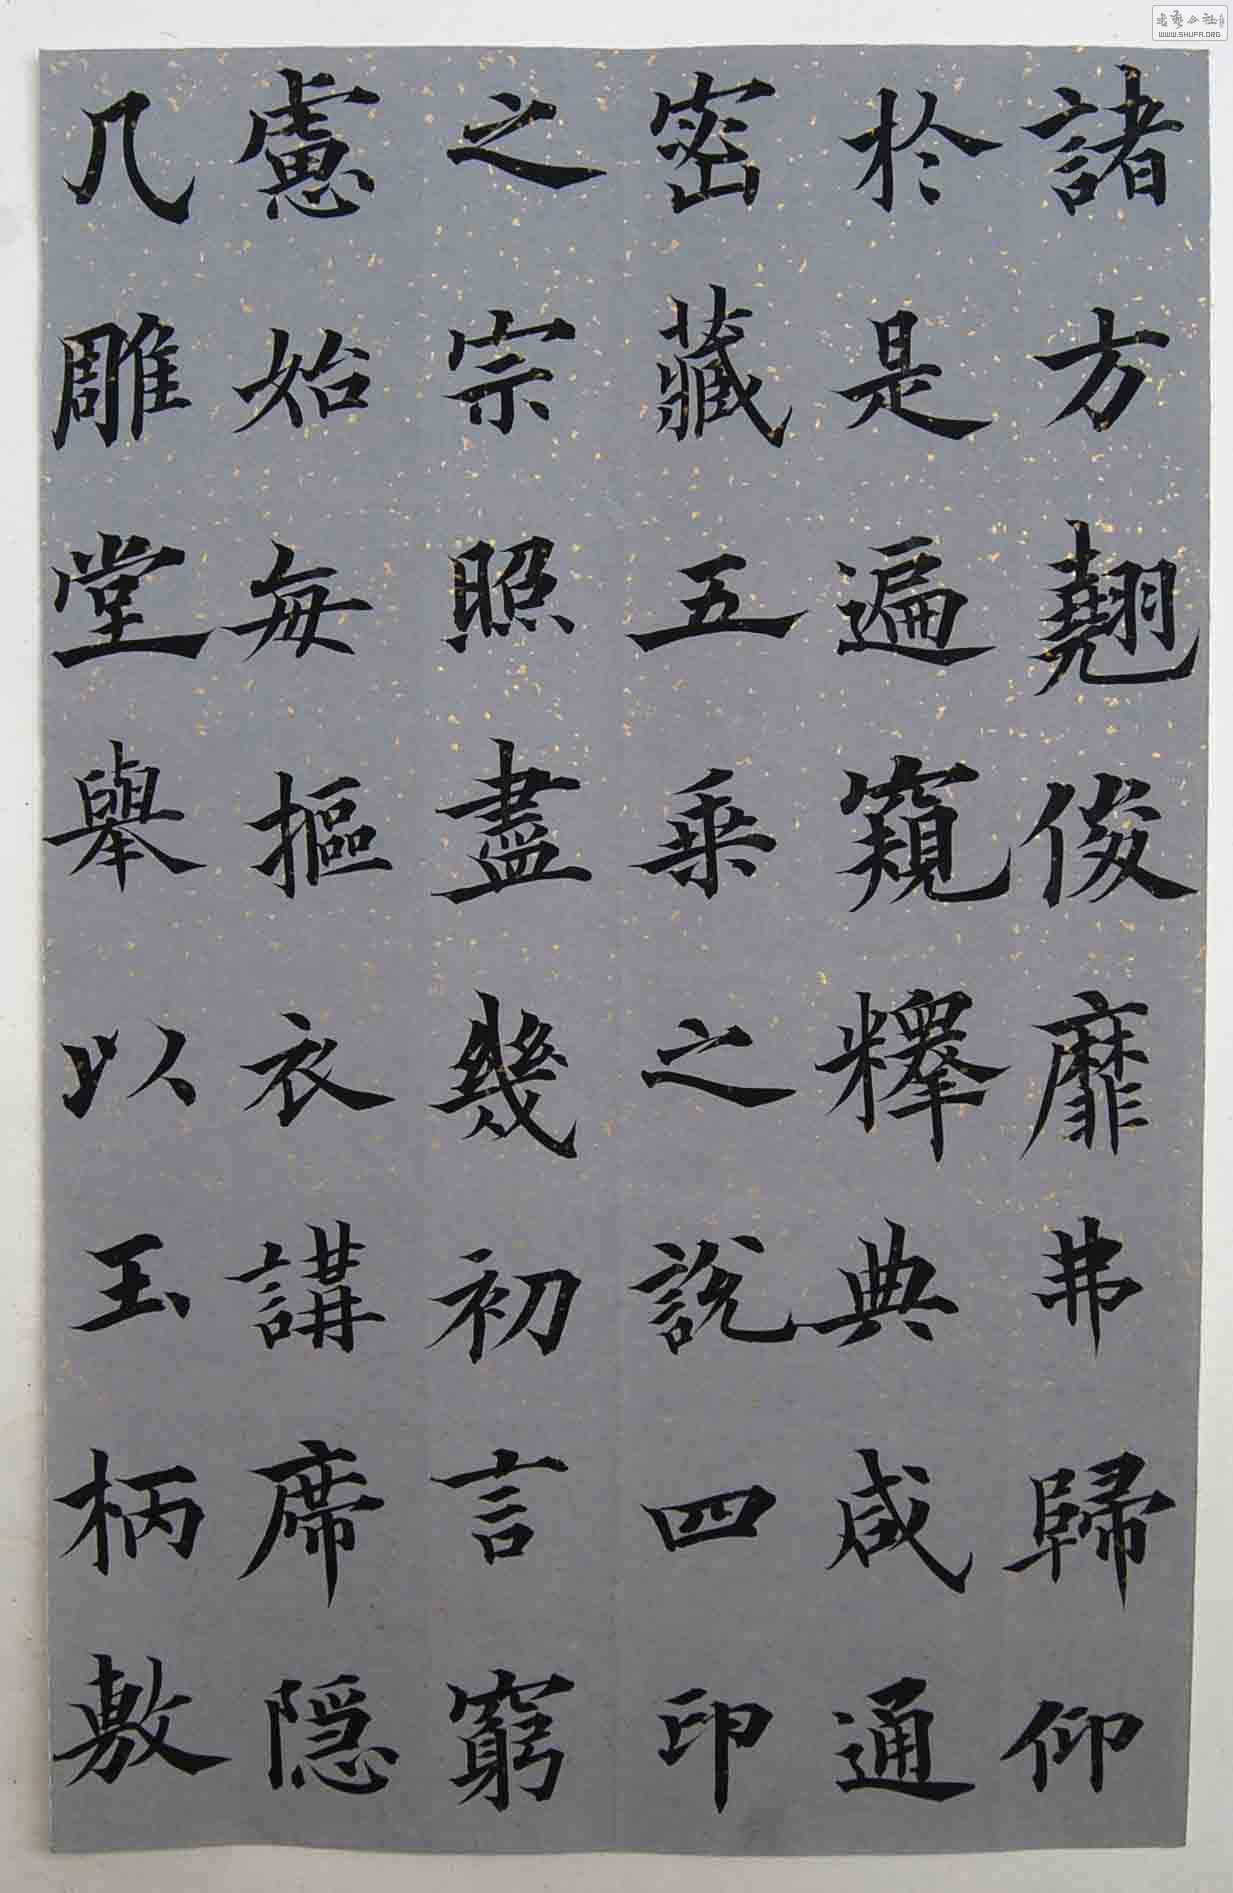 諸方翹俊靡弗歸仰
於是遍窺釋典咸通
密藏五乘之說四印
之宗照盡幾初言窮
慮始每摳衣講席隱
几雕堂舉以玉柄敷
WWW.SHUFA.ORG